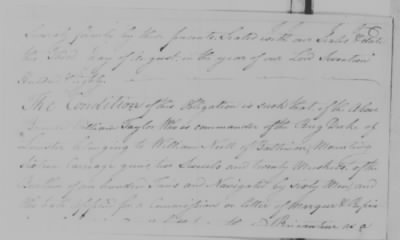 firmly by these presents. Sealed with our Seals & dated
this third day of August in the year of our Lord Seventeen
Hundred & eighty
The Condition of this Obligation is such that if the Above
Bounden William Taylor Who is commander of the Brig Duke of
Leinster belonging to William Neill of Baltimore, Mounting
Sixteen Carriage guns, two Swivels and twenty Muskets, of the
Burthen of an hundred Tons and Navigated by Sixty Men, and
who has applied for a Commission or letter of Marque &
as a